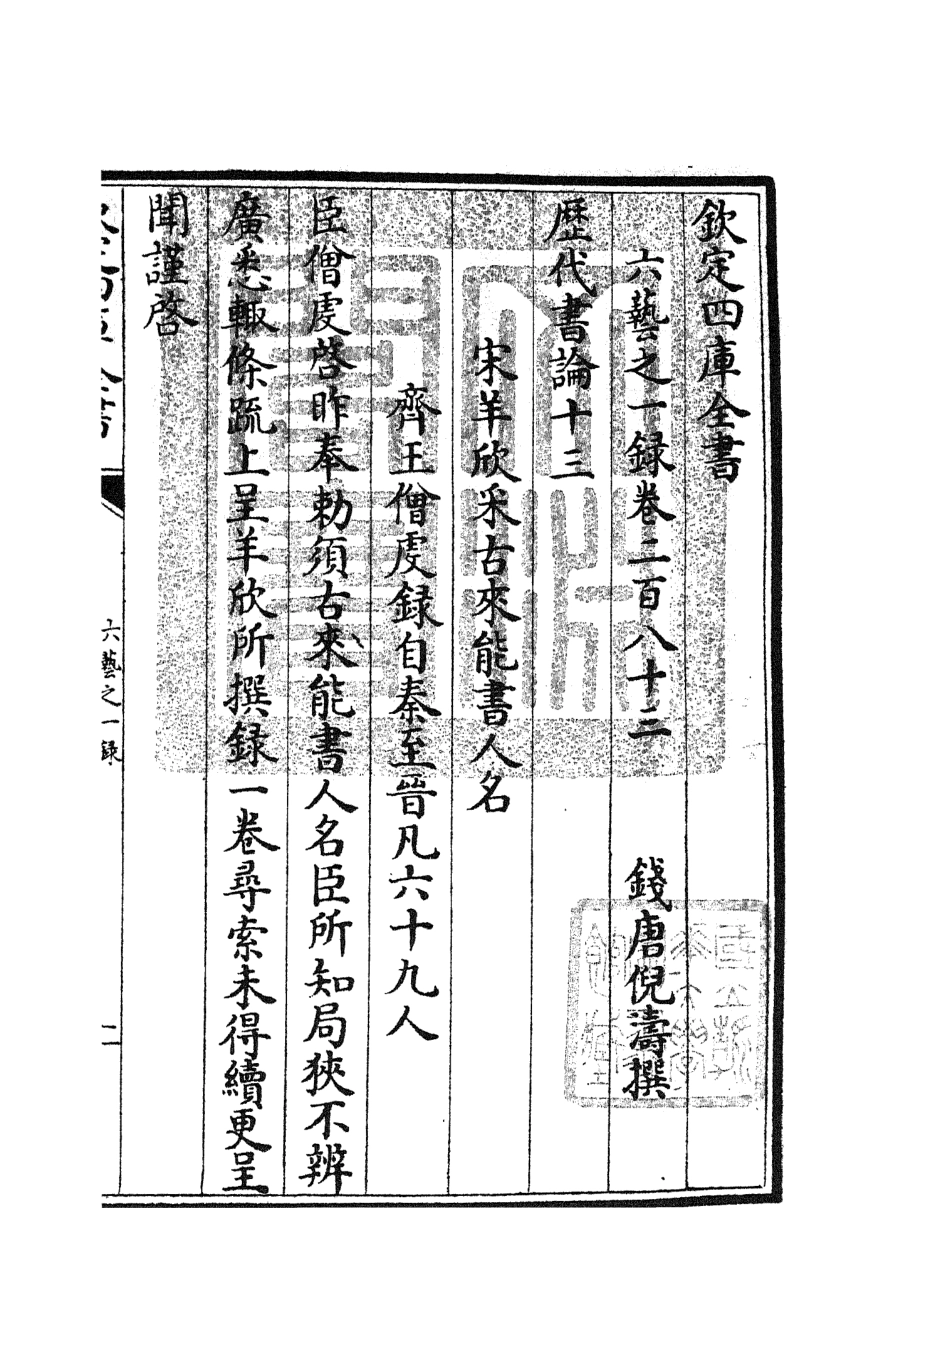 欽定四庫全書
六藝之一録卷二百八十二　　錢唐倪濤撰
歴代書論十三
宋羊欣采古來能書人名
齊王僧虔録自秦至晉凡六十九人
臣僧虔啓昨奉勅須古來能書人名臣所知局狹不辨
廣悉輙條疏上呈羊欣所撰録一卷尋索未得續更呈
聞謹啓
六藝之一録